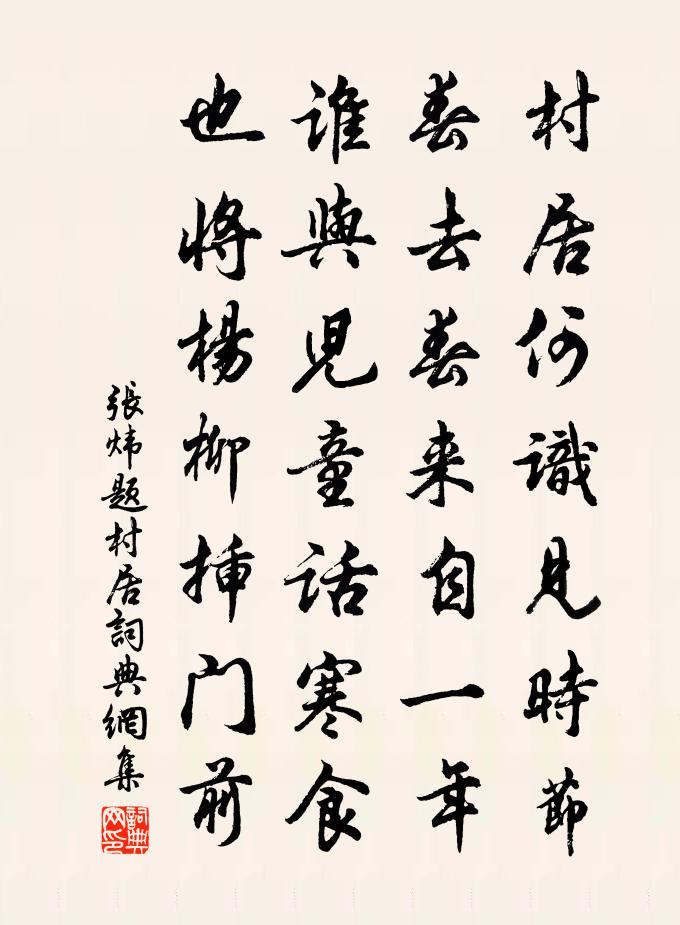 村居何識見時節
春去春来自一年
誰與児童話寒食
也將楊柳插门前
張炜题村居詞典網集
詞典网印